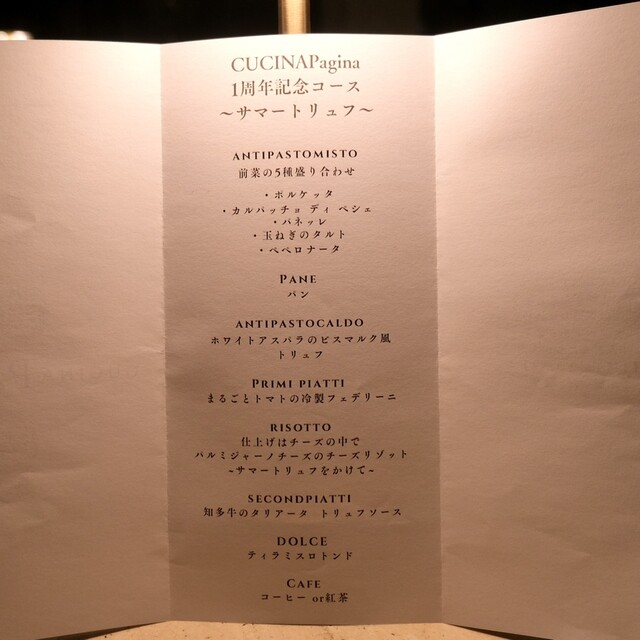 CUCINAPagina
1周年記念コース
～サマートリュフ～
ANTIPASTOMISTO
前菜の5種盛り合わせ
・ポルケッタ
・カルパッチョ ディ ペシェ
・パネッレ
・玉ねぎのタルト
・ペペロナータ
PANE
パン
ANTIPASTOCALDO
ホワイトアスパラのビスマルク風
トリュフ
PRIMI PIATTI
まるごとトマトの冷製フェデリーニ
RISOTTO
仕上げはチーズの中で
パルミジャーノチーズのチーズリゾット
~サマートリュフをかけて~
SECONDPIATTI
知多牛のタリアータ トリュフソース
DOLCE
ティラミスロトンド
CAFE
コーヒー or紅茶